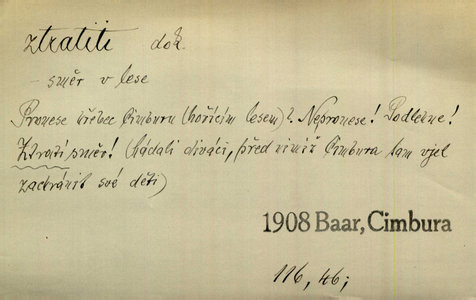 ztratiti dok.
– směr v lese
Pronese hřebec Cimburu (hořícím lesem)? Nepronese! Podlehne!
Ztratí směr! (hádali diváci, před nimiž Cimbura tam vjel
zachránit své děti)
1908 Baar, Cimbura
116, 46;